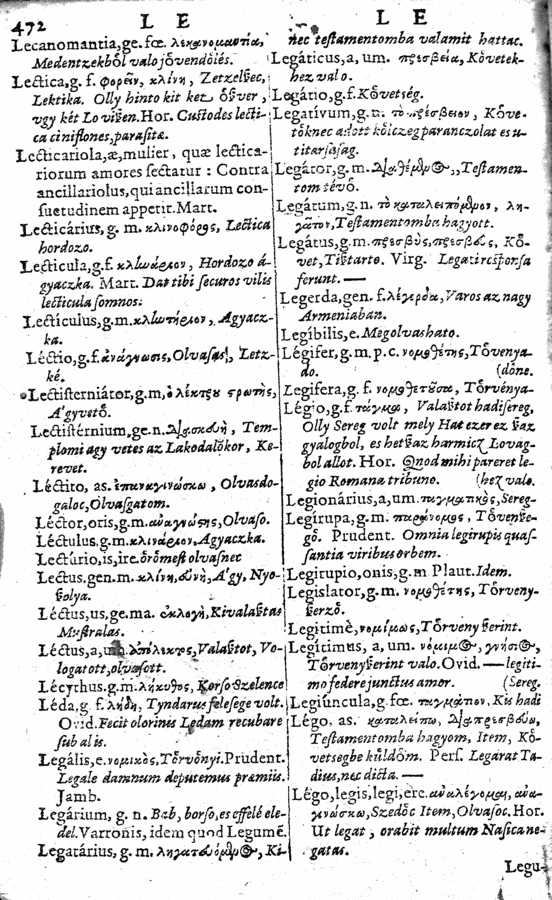 472 L E L E
Lecanomantia, ge. fœ. λεκανομαντία,
Medentzekbôl valo jôvendôlés.
Lectica, g. f. φορεῖον, κλίνη, Zetzelſſec,
Lektika. Olly hinto kit ket ôſſver,
vgy két Lo viſſen. Hor. Cuſtodes lecti-
ca ciniflones, paraſitæ.
Lecticariola, æ, mulier, quæ lectica-
riorum amores ſectatur: Contra
ancillariolus, qui ancillarum con-
ſuetudinem appetit. Mart.
Lecticárius, g. m. κλινοφόρος, Lectica
hordozo.
Lecticula, g. f. κλινάριον, Hordozo á-
gyaczka. Mart. Dat tibi ſecuros vilis
lecticula ſomnos:
Lectículus, g. m. Agyacz-
ka.
Léctio, g. f. ἀνάγνωσις, Olvaſas, Zetz-
ké.
Lectiſterniátor, g. m, ὁ λέκτρου στρωτής,
A'gyvetô.
Lectiſtérnium, ge. n. Tem-
plomi agy vetes az Lakodalôkor, Ke-
revet.
Léctito, as. ἐπαναγινώσκω, Olvasdo-
galoc, Olvaſgatom.
Léctor, oris, g. m. ἀναγνώστης, Olvaſo.
Léctulus. g. m. κλινάριον, Agyaczka.
Lectúrio, is, ire. ôrômeſt olvaſnec
Lectus. gen. m. κλίνη, εὐνὴ, A'gy, Nyo-
ſſolya.
Léctus, us, ge. ma. ἐκλογὴ, Kivalaſſtas
Muſtralas.
Léctus, a, um. ἐπίλεκτος, Valaſſtot, Vo-
logatott, olvaſott.
Lécythus. g. m. λήκυθος, Korſo Szelence
Léda, g. f. λήδη, Tyndarus feleſege volt.
Ovid. Fecit olorinis Ledam recubare
ſub alis.
Legális, e. νομικὸς, Tôrvônyi. Prudent.
Legale damnum deputemus præmiis.
Jamb.
Legárium, g. n. Bab, borſo, es efféle ele-
del. Varronis, idem quod Legumē.
Legatárius, g. m. Kí-
nec teſtamentomba valamit hattac.
Legáticus, a, um. πρεσβεία, Kôvetek-
hez valo.
Legátio, g. f. Kôvetség.
Legatívum, g. n. τὸ πρέσβειον, Kôve-
tôknec adott kôlczeg paranczolat es u-
titarſaſag.
Legátor, g. m. Teſtamen-
tom tévô.
Legátum, g. n. τὸ καταλειπόμενον, λη-
γᾶτον, Teſtamentomba hagyott.
Legátus, g. m. πρεσβύς, πρεσβευτὴς, Kô-
vet, Tiſſtarto. Virg. Legati reſponſa
ferunt. —
Legerda, gen. f. λέγερδα, Varos az nagy
Armeniaban.
Legíbilis, e. Megolvashato.
Légifer, g. m. p. c. νομοθέτης, Tôvenya-
do. (dône.
Legifera, g. f. νομοθετοῦσα, Tôrvénya-
Légio, g. f. τάγμα, Valaſſtot hadi ſereg,
Olly Sereg volt mely Hat ezer ez ſſaz
gyalogbol, es het ſſaz harmicz Lovag-
bol allot. Hor. Quod mihi pareret le-
gio Romana tribuno. (hez valo.
Legionárius, a, um. ταγματικὸς, Sereg-
Legírupa, g. m. παράνομος, Tôvenſſe-
gô. Prudent. Omnia legirupis quaſ-
ſantia viribus orbem.
Legirupio, onis, g. m Plaut. Idem.
Legislator, g. m. νομοθέτης, Tôrveny-
ſſerzô.
Legitimè, νομίμως, Tôrveny ſſerint.
Legítimus, a, um. νόμιμος, γνήσιος,
Tôrveny ſſerint valo. Ovid. — legiti-
mo federe junctus amor. (Sereg.
Legiúncula, g. fœ. ταγμάτιον, Kis hadi
Légo, as. καταλείπω, διαπρεσβεύω,
Teſtamentomba hagyom, Item, Kô-
vetsegbe kûldôm. Perſ. Legarat Ta-
dius, nec dicta. —
Légo, legis, legi, ere. ἀναλέγομαι, ἀνα-
γινώσκω, Szedôc Item, Olvaſoc. Hor.
Ut legat, orabit multum Naſica ne-
gatas.
Legu-